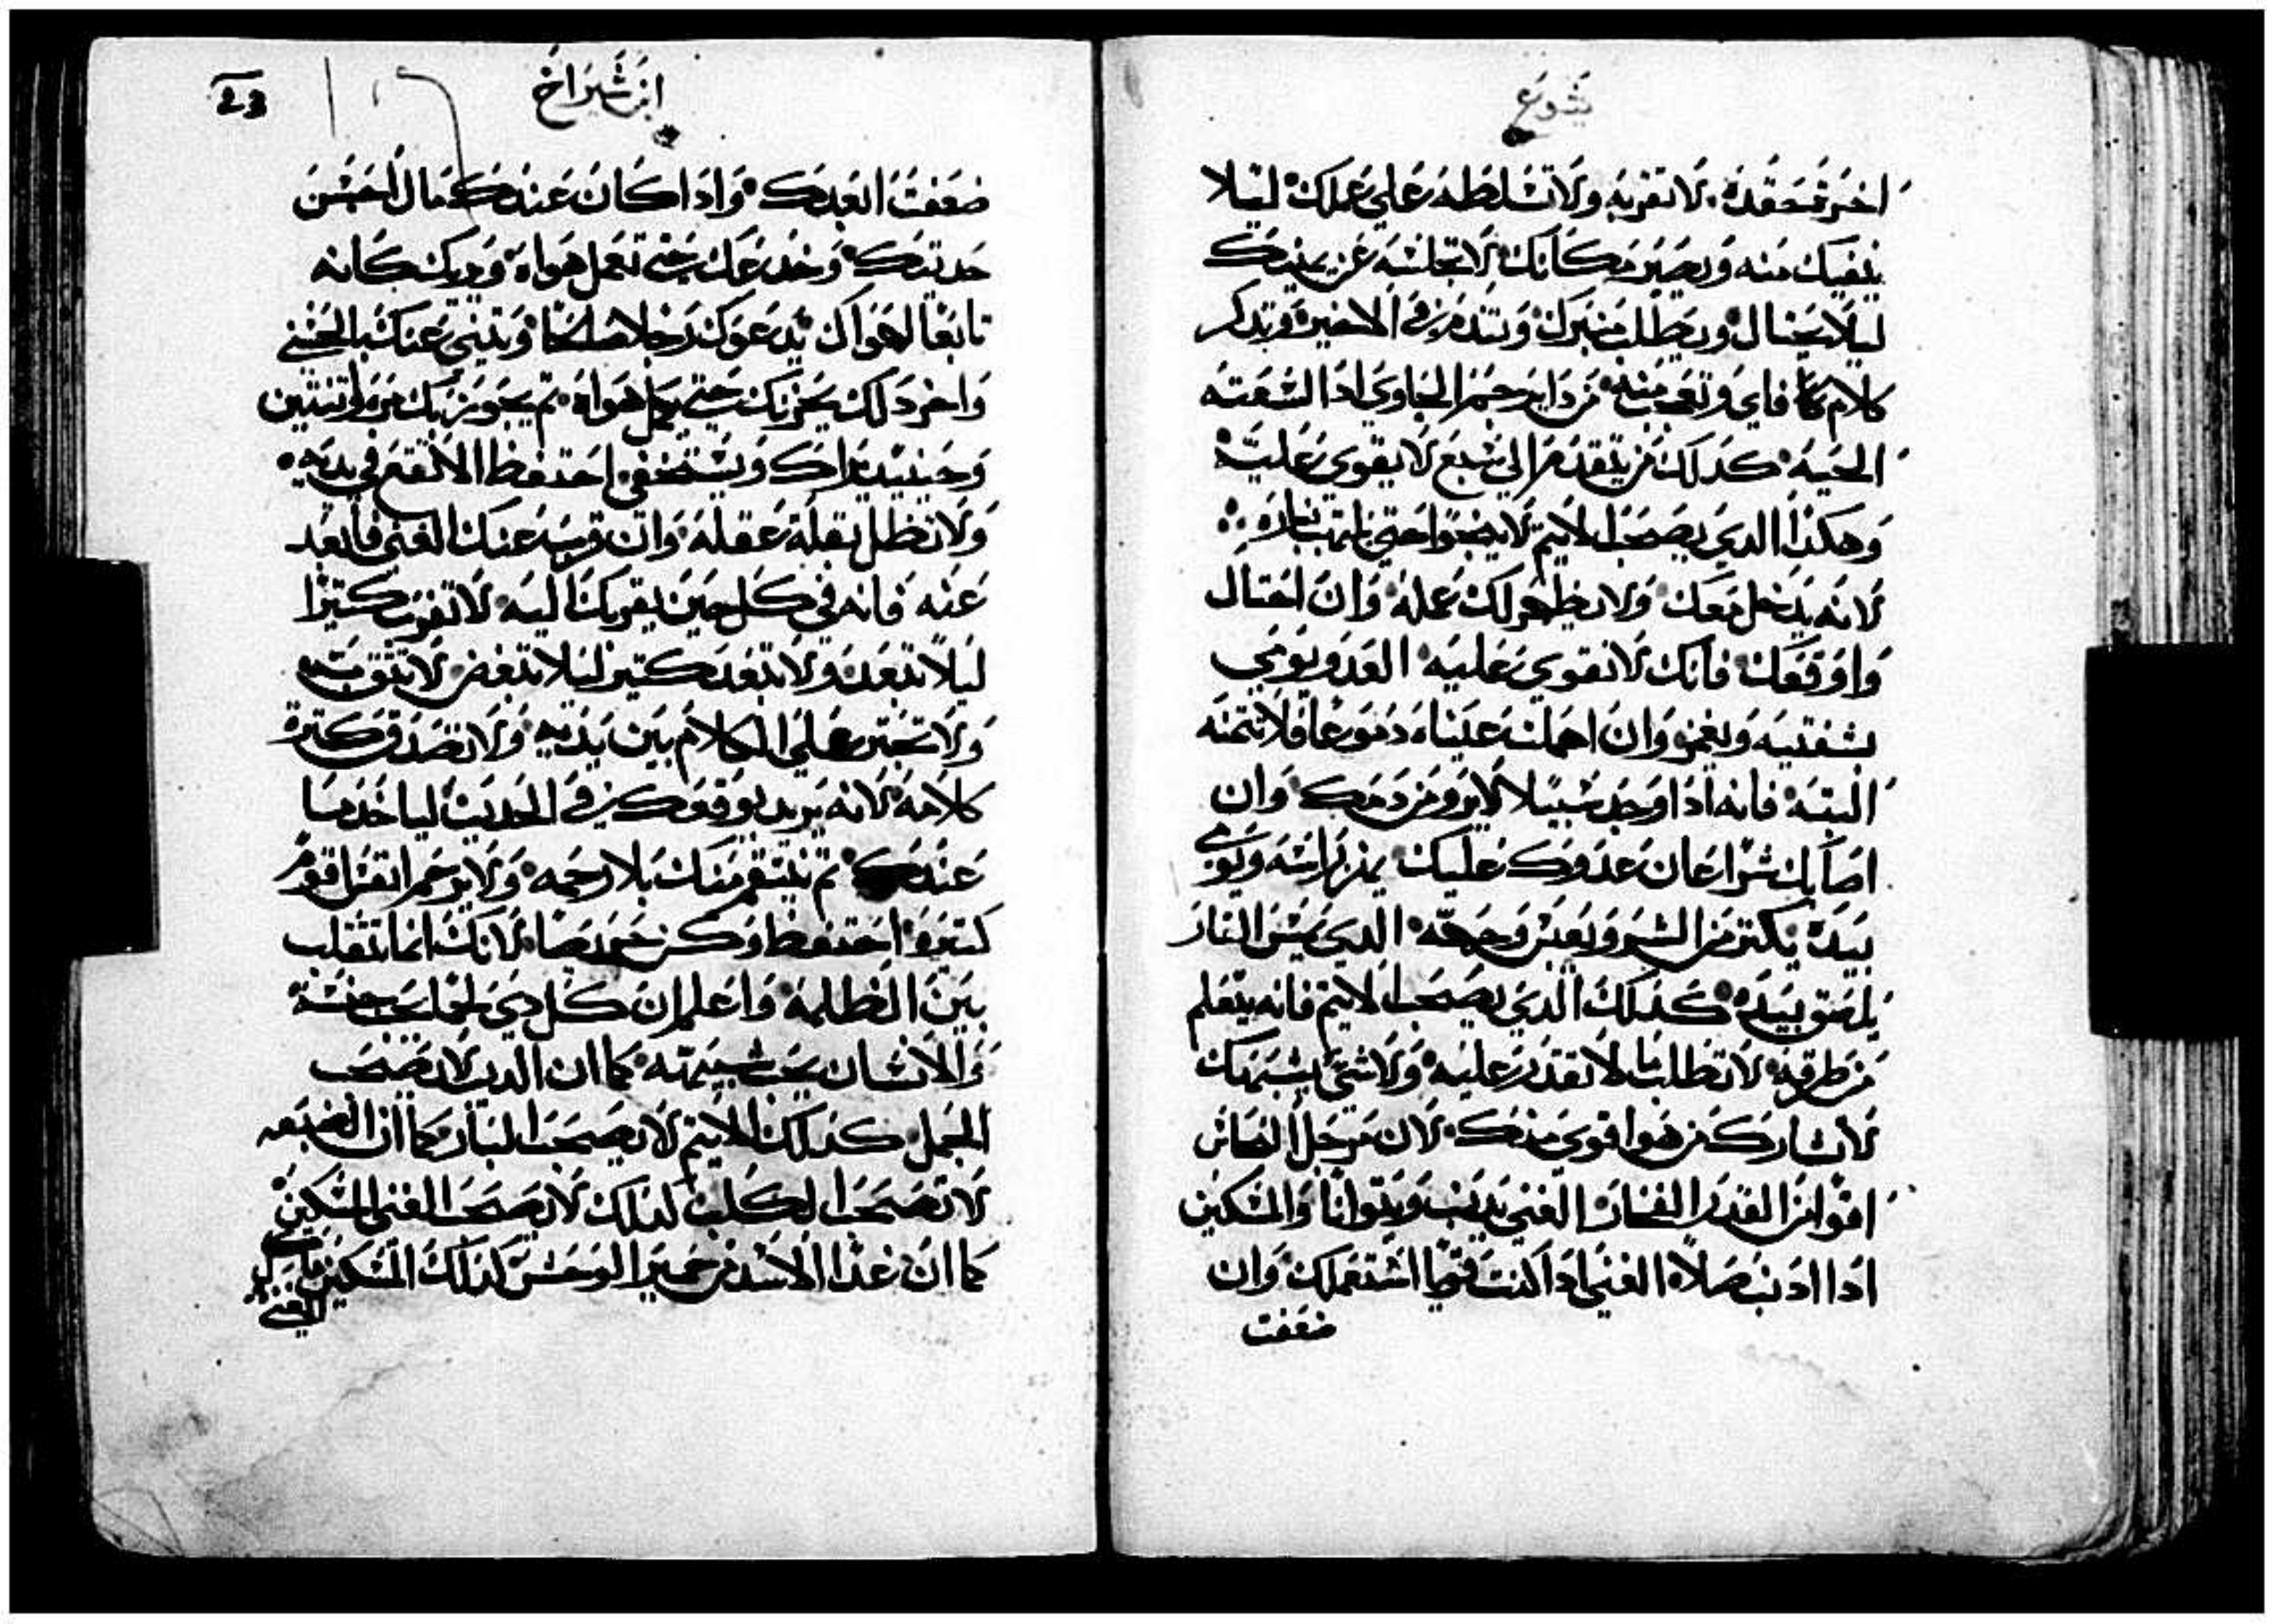 يشوع
اخرته حقده. لا تقربه ولا تسلطه على عملك ليلا
ينفيك منه ويصير مكانك لا تجلسه عن يمينك
ليلا يختال ويطلب منبرك وتتندم في الاخير وتدكر
كلام فاي وتعجب منه من دا يرحم الحاوي ادا لسعته
الحيه كدلك من يتقدم الي سبع لا يقوي عليه
وهكذا الدي يصحب الاتيم لا ينجوا حتي تلتهب ناره
لانه يدخل معك ولا يظهر لك عمله وان احتال
واوقعك فانك لا تقوي عليه العدو يومي
بشفتيه ويغمز وان اهملت عيناه دموعا فلا تتمنه
البته فانه ادا وجد سبيلا لا يروى من دمك وان
اصابك شرا عان عدوك عليك يهز راسه ويومي
بيده يكتر من الشر ويعبس وجهه الدي يمس النار
يلصق بيده كدلك الدي يصحب الاتيم فانه يتعلم
من طرقه لا تطلب ما لا تقدر عليه ولا شي يشبهك
لا تشارك من هو اقوي منك لان مرجل النحاس
اقوا من القدر الفخار الغني يدنب ويتوانا والمسكين
ادا ادنب صلاه الغني ادا كنت قويا استعملك وان
ضعفت
ابن شيراخ
23
ضعفت ابعدك وادا كان عندك مال احسن
حديتك وخدعك حتي تعمل هواه ويريك كانه
تابعا لهواك يدعوك رجلا صالحا ويتني عنك بالحسني
واخر دلك يحزنك حتي يكمل هواه تم يجوز بك مره او تنتين
وحينيد يراك ويستخفي احتفظ الا تقع في يديه
ولا تظل بقلة عقله وان قربه عنك الغني فابعد
عنه فانه في كل حين يقربك اليه لا تقرب كتيرا
ليلا تبعد ولا تبعد كتير ليلا تبغض لا تتق به
ولا تجتر علي الكلام بين يديه ولا تصدق كترة
كلامه لانه يريد يوقعك في الحديت لياخد ما
عندك تم ينتقم منك بلا رحمه ولا يرحم انفس اقوام
كتيره احتفظ وكن حريصا لانك انما تتقلب
بين الظلمه واعلم ان كل دي لحم يحب جنسه
والانسان يحب شبيهته كما ان الديب لا يصحب
الحمل كدلك الاتيم لا يصحب البار كما ان الضبعه
لا تصحب الكلب كدلك لا يصحب الغني المسكين
كما ان غدا الاسد من حمير الوحش كدلك المسكين
الغني